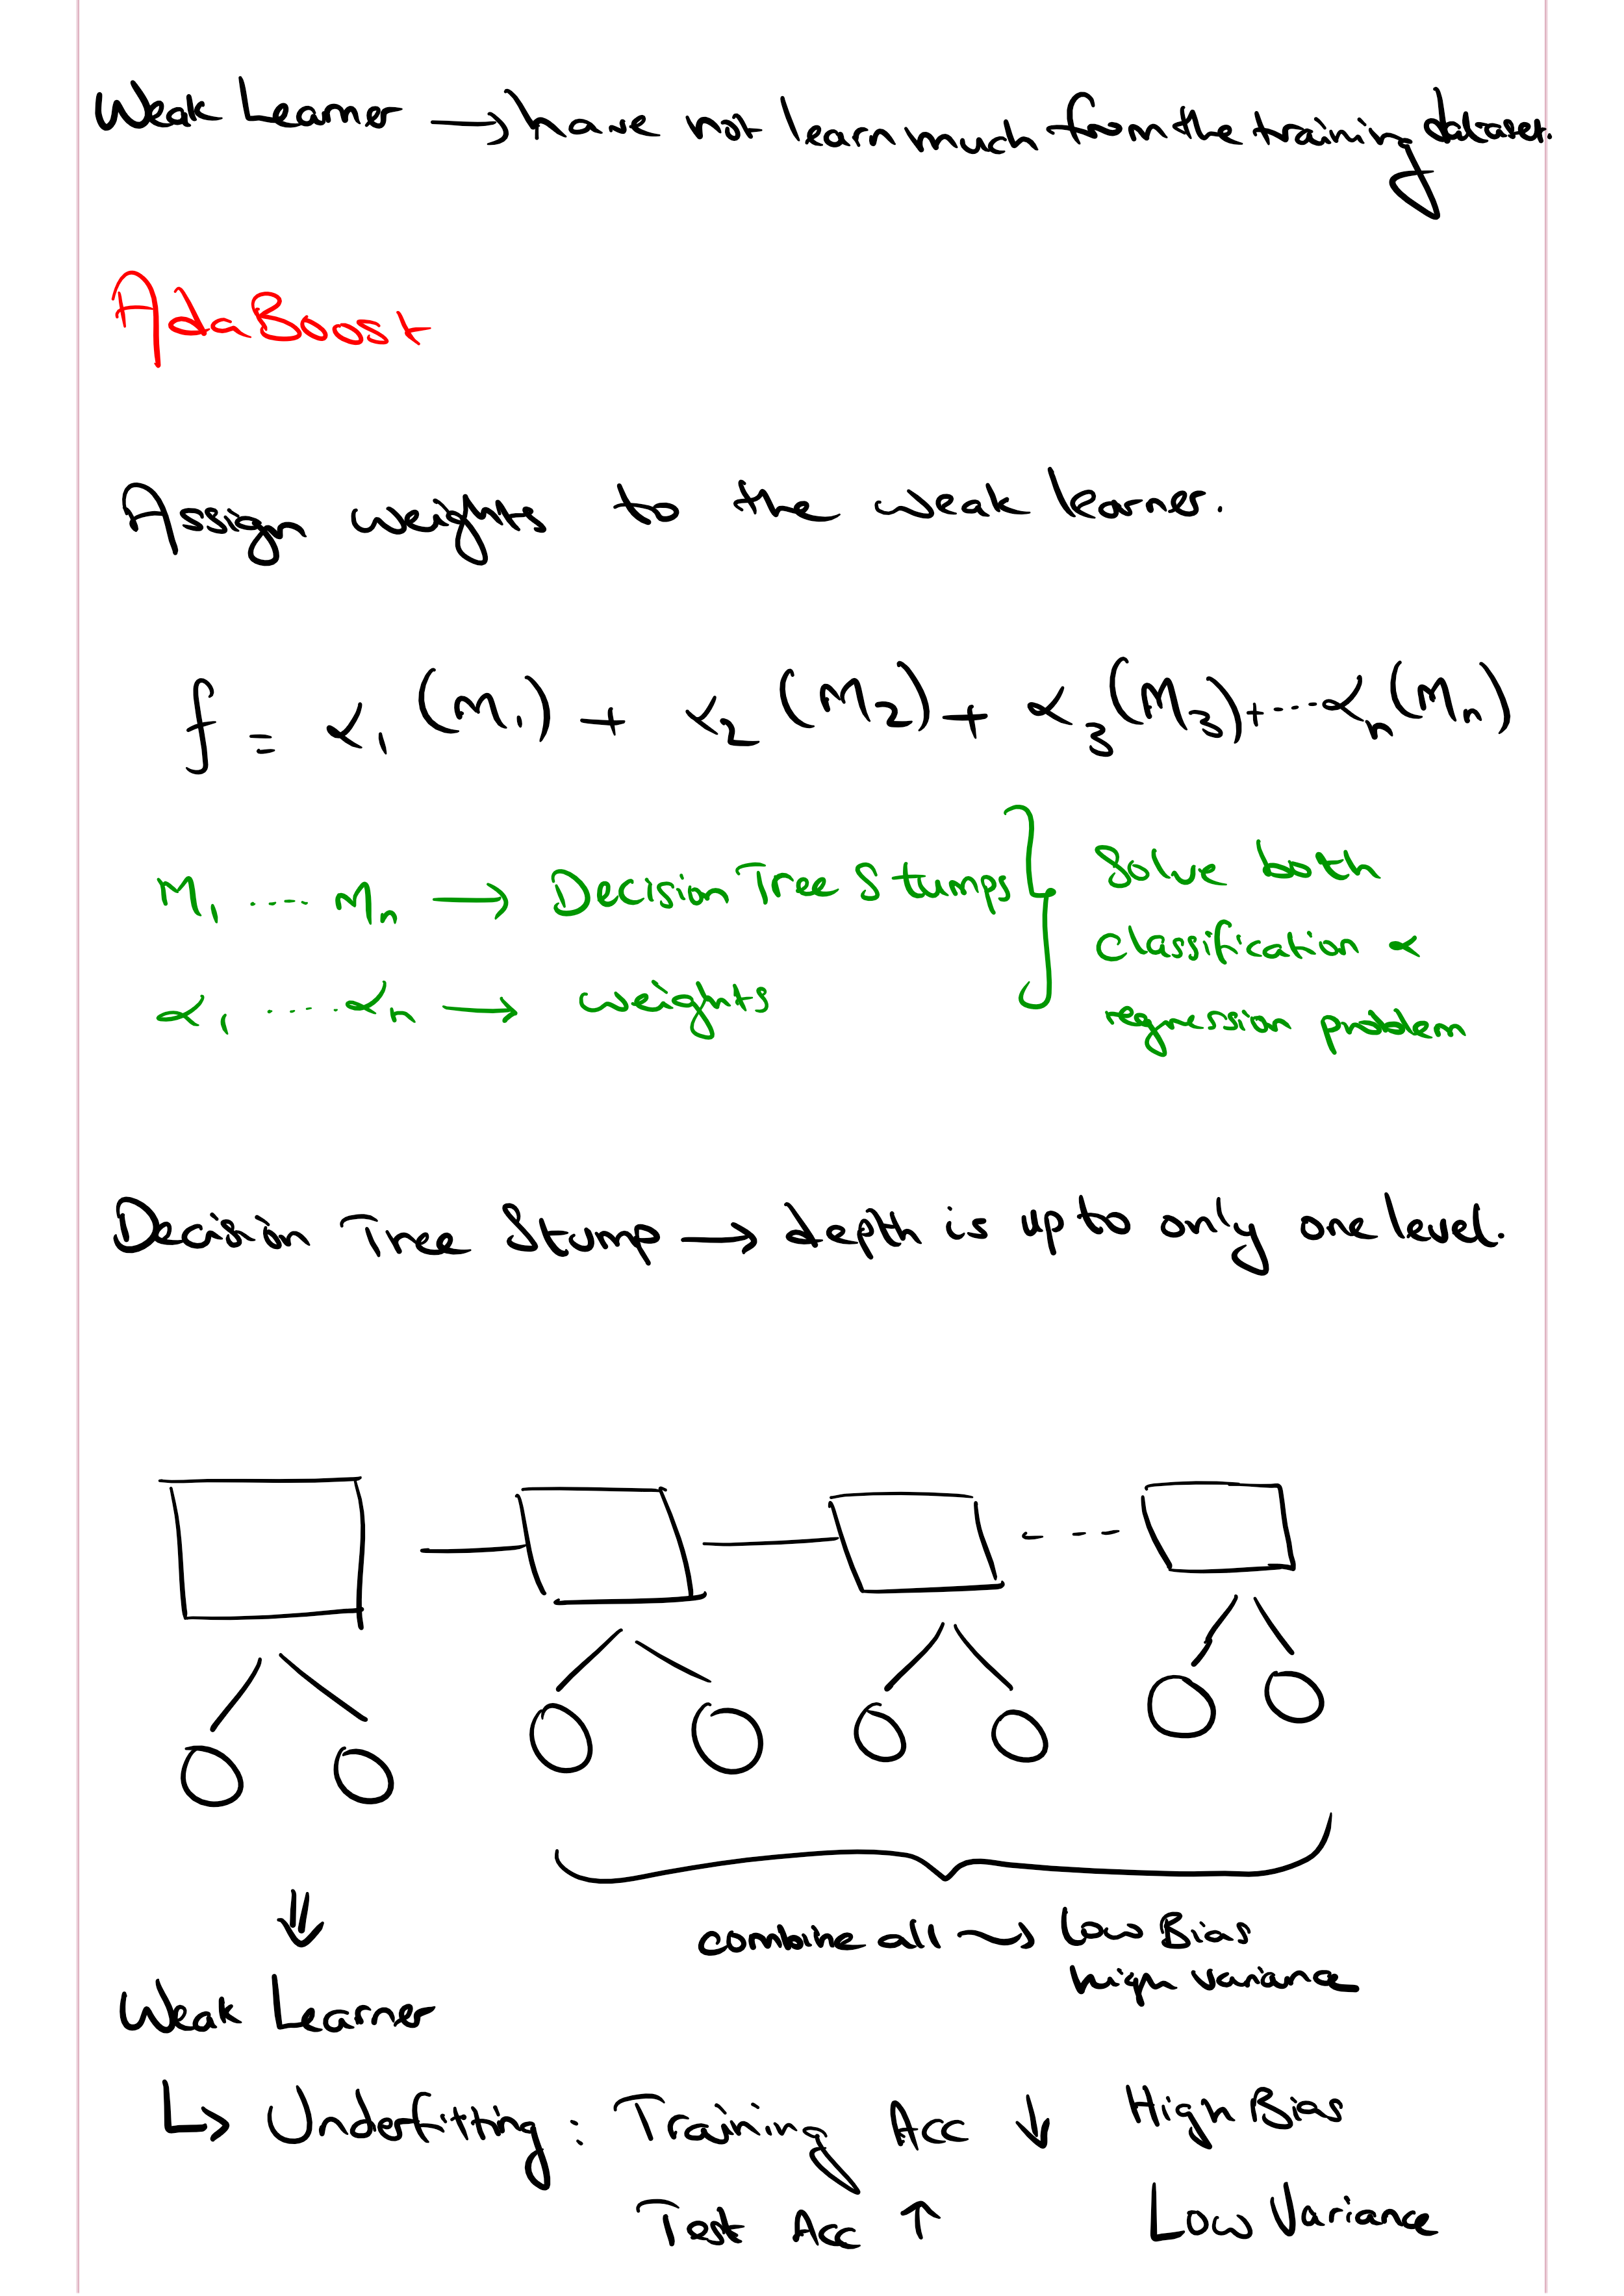 Weak Learner → have not learn much from the training dataset.
AdaBoost
Assign weights to the weak learner.
f = α₁ (M₁) + α₂ (M₂) + α₃ (M₃) + ---- αₙ (Mₙ)
M₁ ---- Mₙ → Decision Tree Stumps } Solve both
classification &
α₁ ---- αₙ → weights
regression problem
Decision Tree Stump → depth is up to only one level.
combine all → Low Bias
high variance
Weak Learner
↳ Underfitting : Training Acc ↓ High Bias
Test Acc ↑ Low Variance